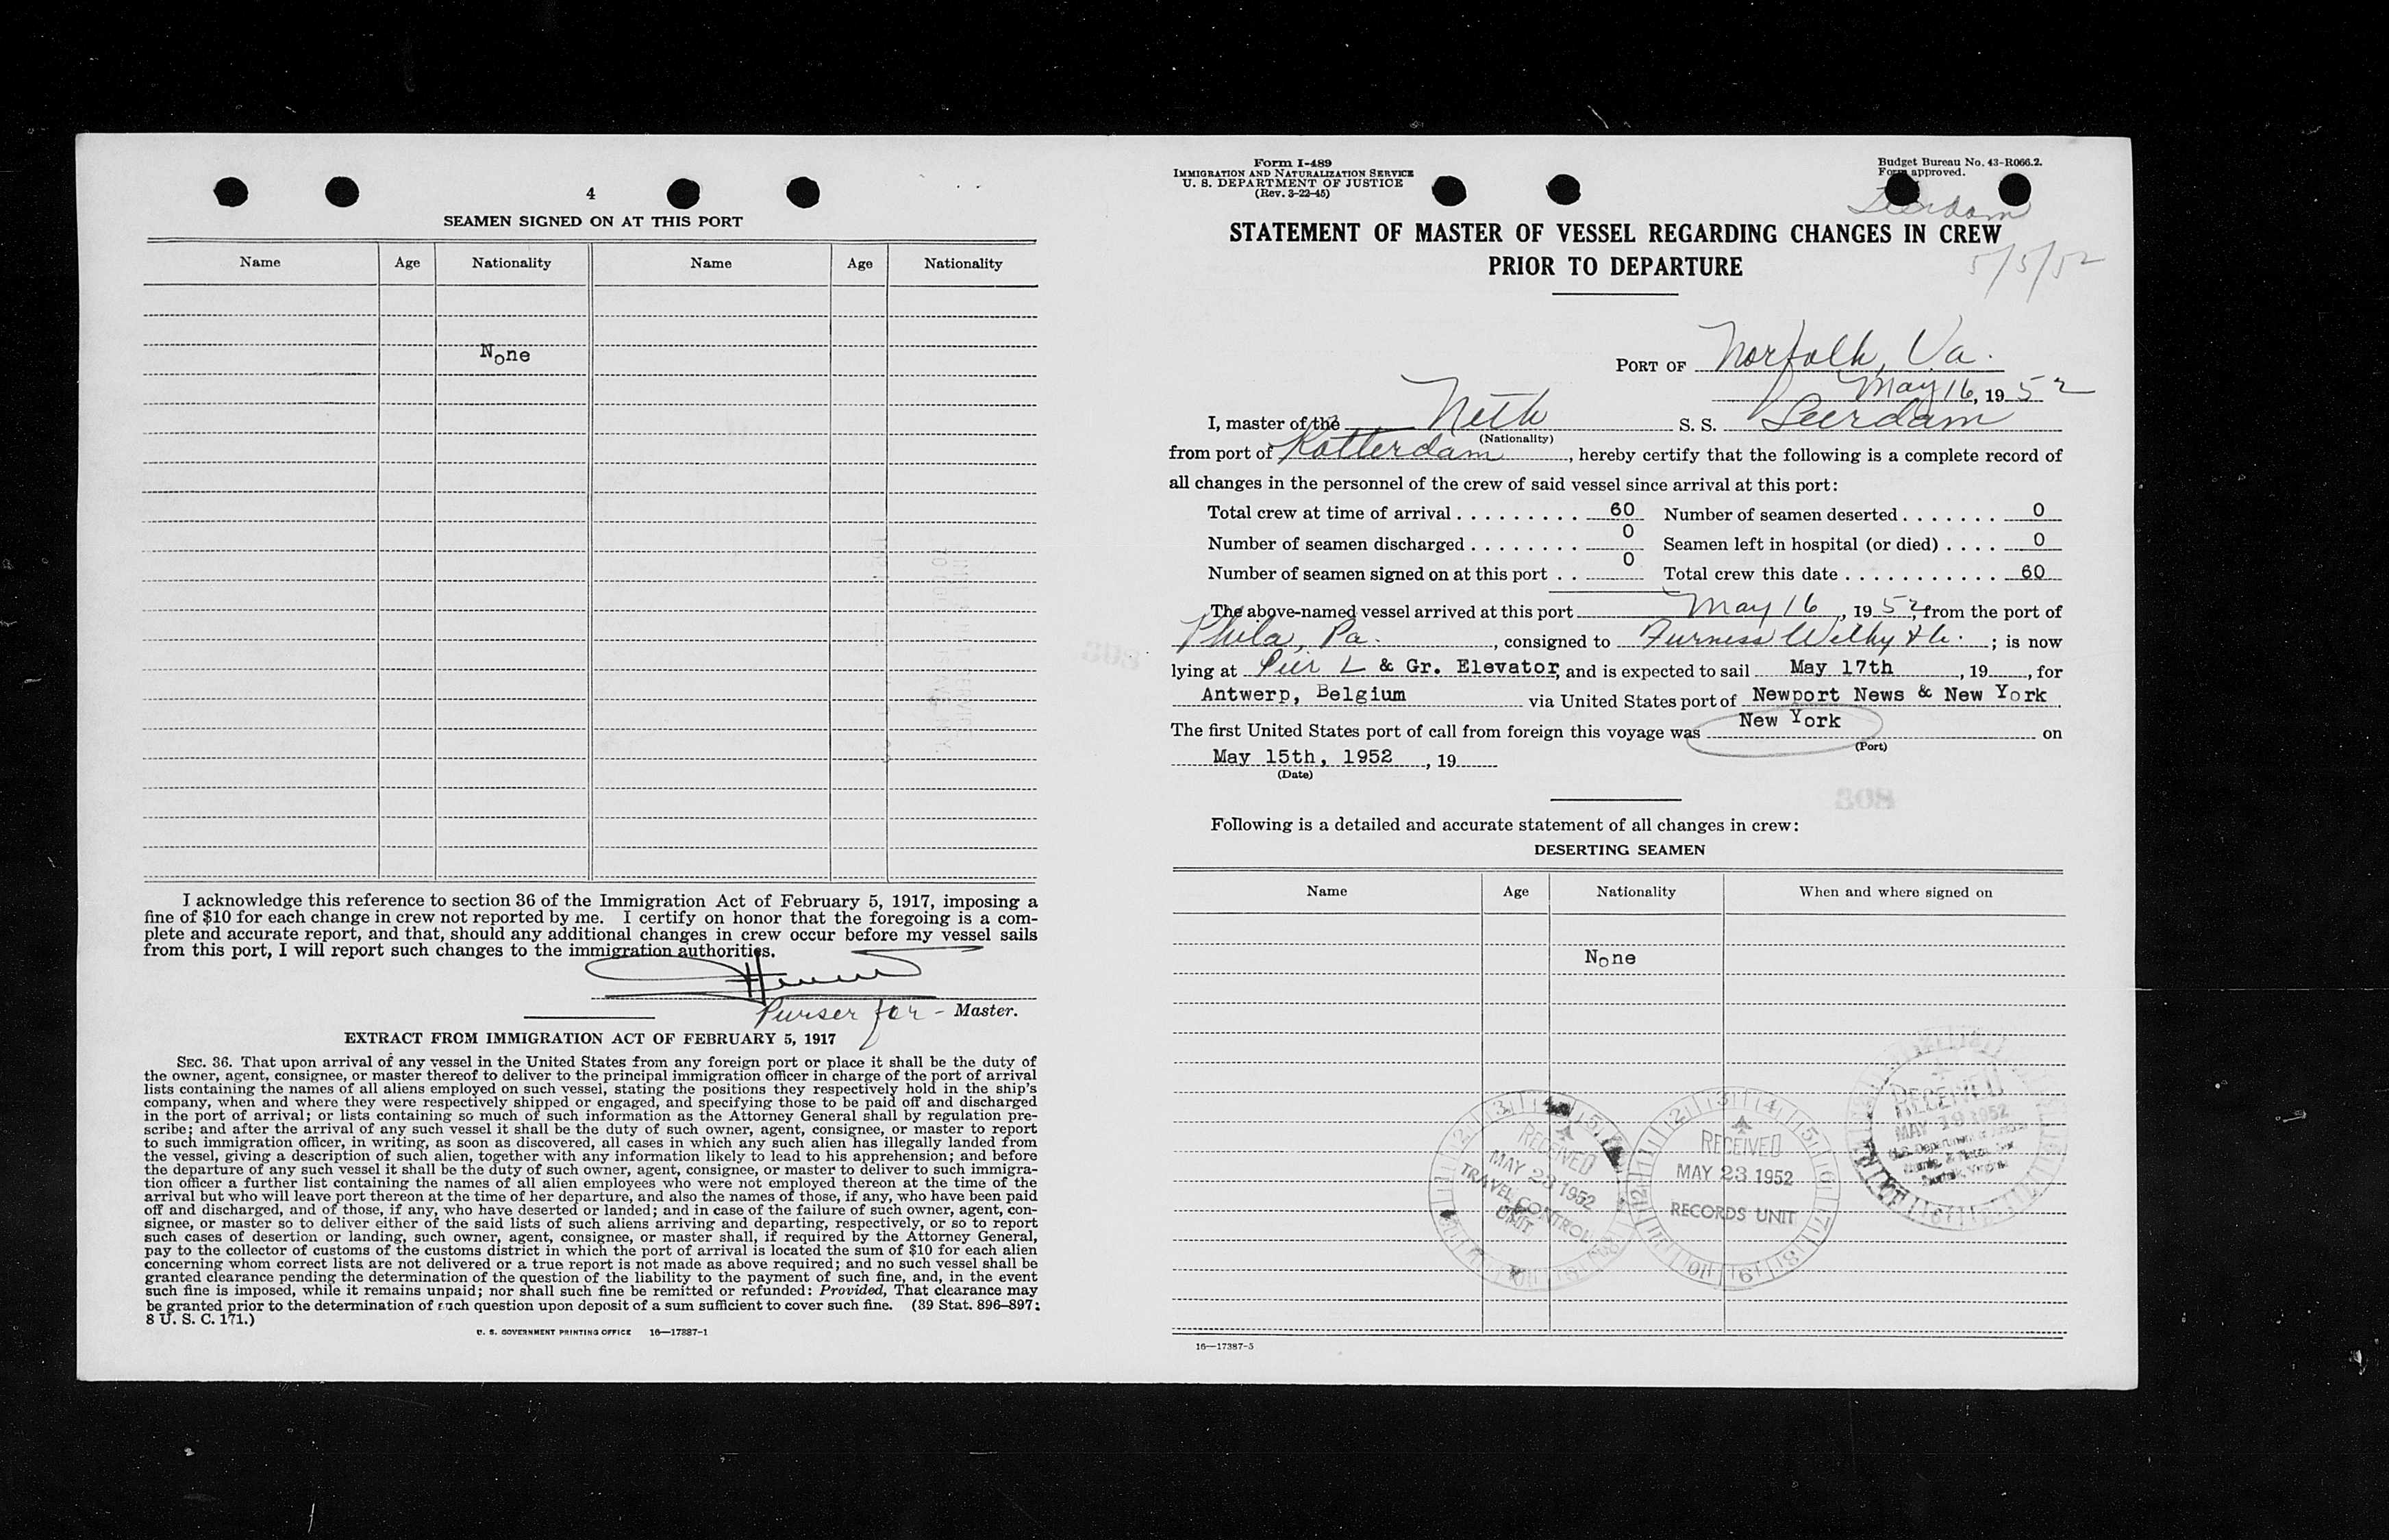 4
SEAMEN SIGNED ON AT THIS PORT
Name Age Nationality Name Age Nationality
None
I acknowledge this reference to section 36 of the Immigration Act of February 5, 1917, imposing a
fine of $10 for each change in crew not reported by me. I certify on honor that the foregoing is a com-
plete and accurate report, and that, should any additional changes in crew occur before my vessel sails
from this port, I will report such changes to the immigration authorities.
Purser for - Master.
EXTRACT FROM IMMIGRATION ACT OF FEBRUARY 5, 1917
SEC. 36. That upon arrival of any vessel in the United States from any foreign port or place it shall be the duty of
the owner, agent, consignee, or master thereof to deliver to the principal immigration officer in charge of the port of arrival
lists containing the names of all aliens employed on such vessel, stating the positions they respectively hold in the ship's
company, when and where they were respectively shipped or engaged, and specifying those to be paid off and discharged
in the port of arrival; or lists containing so much of such information as the Attorney General shall by regulation pre-
scribe; and after the arrival of any such vessel it shall be the duty of such owner, agent, consignee, or master to report
to such immigration officer, in writing, as soon as discovered, all cases in which any such alien has illegally landed from
the vessel, giving a description of such alien, together with any information likely to lead to his apprehension; and before
the departure of any such vessel it shall be the duty of such owner, agent, consignee, or master to deliver to such immigra-
tion officer a further list containing the names of all alien employees who were not employed thereon at the time of the
arrival but who will leave port thereon at the time of her departure, and also the names of those, if any, who have been paid
off and discharged, and of those, if any, who have deserted or landed; and in case of the failure of such owner, agent, con-
signee, or master so to deliver either of the said lists of such aliens arriving and departing, respectively, or so to report
such cases of desertion or landing, such owner, agent, consignee, or master shall, if required by the Attorney General,
pay to the collector of customs of the customs district in which the port of arrival is located the sum of $10 for each alien
concerning whom correct lists are not delivered or a true report is not made as above required; and no such vessel shall be
granted clearance pending the determination of the question of the liability to the payment of such fine, and, in the event
such fine is imposed, while it remains unpaid; nor shall such fine be remitted or refunded: Provided, That clearance may
be granted prior to the determination of such question upon deposit of a sum sufficient to cover such fine. (39 Stat. 896–897;
8 U. S. C. 171.)
U. S. GOVERNMENT PRINTING OFFICE 16—17387-1
Form I-489
IMMIGRATION AND NATURALIZATION SERVICE
U. S. DEPARTMENT OF JUSTICE
(Rev. 3-22-45)
Budget Bureau No. 43-R066.2.
Form approved.
Leerdam
5/5/52
STATEMENT OF MASTER OF VESSEL REGARDING CHANGES IN CREW
PRIOR TO DEPARTURE
PORT OF Norfolk, Va.
May 16, 1952
I, master of the Neth S. S. Leerdam
(Nationality)
from port of Rotterdam, hereby certify that the following is a complete record of
all changes in the personnel of the crew of said vessel since arrival at this port:
Total crew at time of arrival . . . . . . . . . 60 Number of seamen deserted . . . . . . . 0
Number of seamen discharged . . . . . . . . 0 Seamen left in hospital (or died) . . . . 0
Number of seamen signed on at this port . . 0 Total crew this date . . . . . . . . . . . 60
The above-named vessel arrived at this port May 16, 1952, from the port of
Phila, Pa., consigned to Furness Withy & Co.; is now
lying at Pier L & Gr. Elevator, and is expected to sail May 17th, 19, for
Antwerp, Belgium via United States port of Newport News & New York
The first United States port of call from foreign this voyage was New York on
(Port)
May 15th, 1952, 19
(Date)
308
Following is a detailed and accurate statement of all changes in crew:
DESERTING SEAMEN
Name Age Nationality When and where signed on
None
RECEIVED
MAY 23 1952
TRAVEL CONTROL
UNIT
RECEIVED
MAY 23 1952
RECORDS UNIT
RECEIVED
MAY 19 1952
U.S. Department of Justice
Norfolk, Virginia
16—17387-5